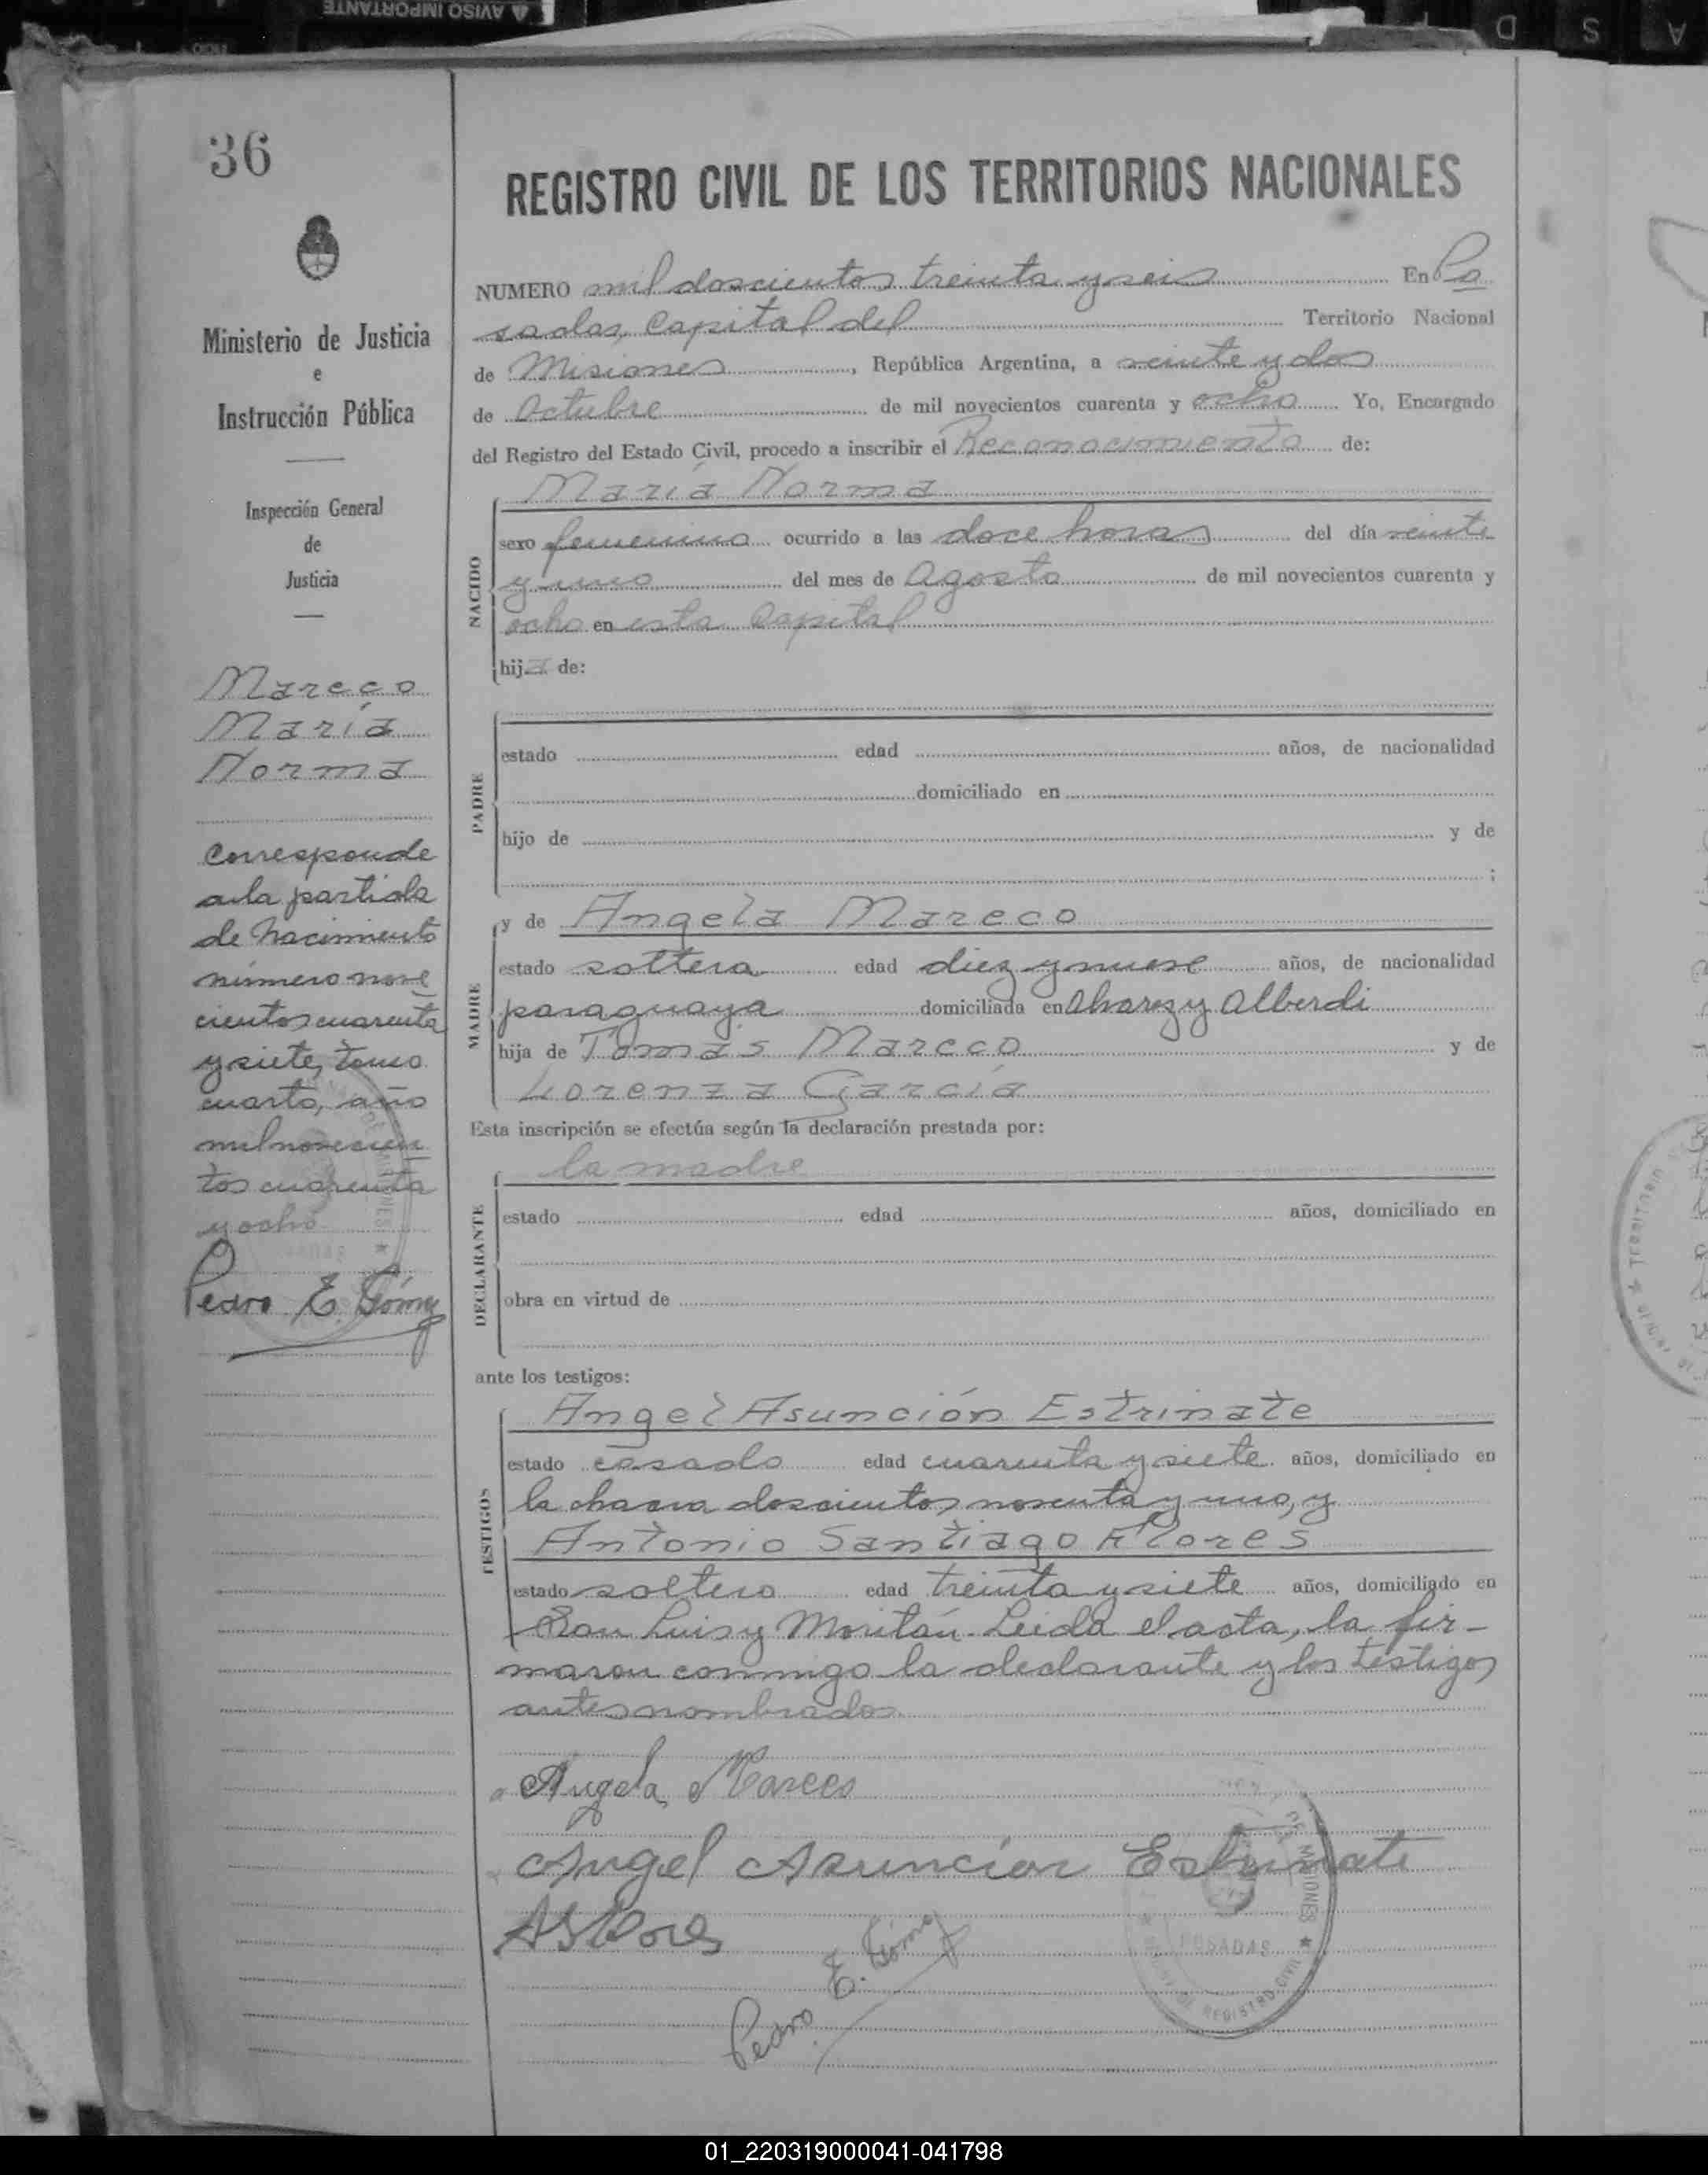 AVISO IMPORTANTE
36
Ministerio de Justicia
e
Instrucción Pública
Inspección General
de
Justicia
Mareco
María
Norma
Corresponde
a la partida
de Nacimiento
número nove
cientos cuarenta
y siete, tomo
cuarto, año
mil novecien
tos cuarenta
y ocho
Pedro E. Gómez
REGISTRO CIVIL DE LOS TERRITORIOS NACIONALES
NUMERO mil doscientos treinta y seis En Po
sadas, Capital del Territorio Nacional
de Misiones, República Argentina, a veinte y dos
de Octubre de mil novecientos cuarenta y ocho Yo, Encargado
del Registro del Estado Civil, procedo a inscribir el Reconocimiento de:
María Norma
NACIDO
sexo femenino ocurrido a las doce horas del día veinte
y uno del mes de Agosto de mil novecientos cuarenta y
ocho en esta Capital
hija de:
PADRE
estado edad años, de nacionalidad
domiciliado en
hijo de y de
;
MADRE
y de Angela Mareco
estado soltera edad diez y nueve años, de nacionalidad
paraguaya domiciliada en Alvarez y Alberdi
hija de Tomás Mareco y de
Lorenza García
Esta inscripción se efectúa según la declaración prestada por:
la madre
DECLARANTE
estado edad años, domiciliado en
obra en virtud de
ante los testigos:
TESTIGOS
Angel Asunción Estrinate
estado casado edad cuarenta y siete años, domiciliado en
la chacra doscientos noventa y uno, y
Antonio Santiago Flores
estado soltero edad treinta y siete años, domiciliado en
San Luis y Moritán. Leída el acta, la fir-
maron conmigo la declarante y los testigos
antes nombrados
Angela Mareco
Angel Asunción Estrinate
AS Flores
Pedro E. Gómez
MISIONES
POSADAS
REGISTRO CIVIL
01_220319000041-041798